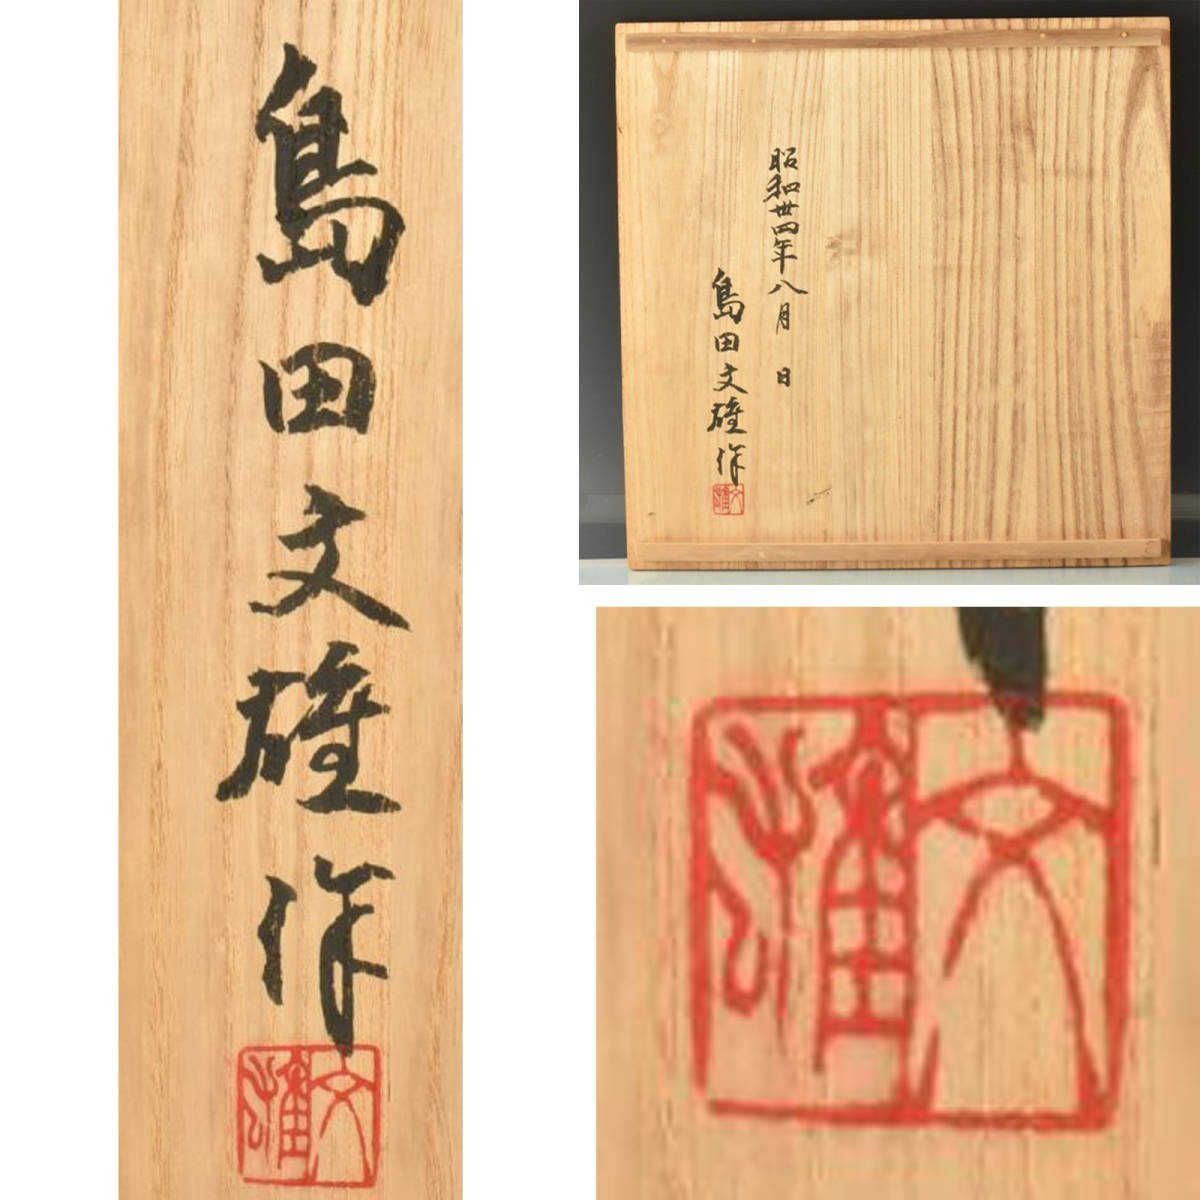 島田文雄作
文雄
昭和卅四年八月 日
島田文雄作
文雄
文雄